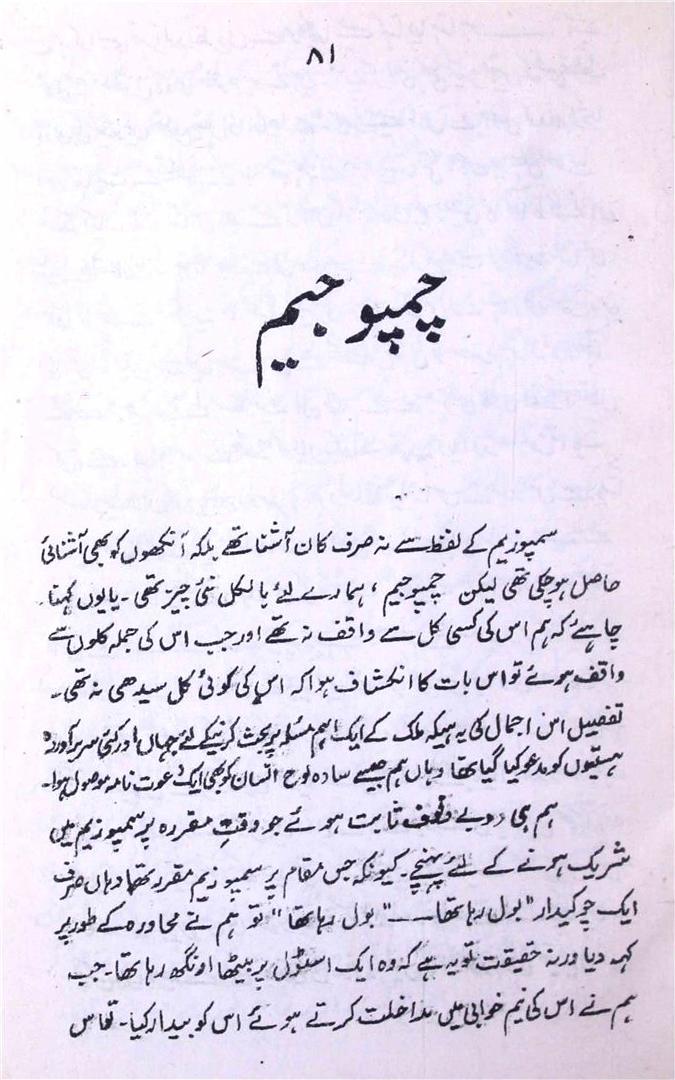 ۸۱
چمپو جیم
سمپوزیم کے لفظ سے نہ صرف کان آشنا تھے بلکہ آنکھوں کو بھی آشنائی
حاصل ہو چکی تھی لیکن ' چمپوجیم ' ہمارے لئے بالکل نئی چیز تھی ۔ یا یوں کہنا
چاہئے کہ ہم اس کی کسی کل سے واقف نہ تھے اور جب اس کی جملہ کلوں سے
واقف ہوئے تو اس بات کا انکشاف ہوا کہ اس کی کوئی کل سیدھی نہ تھی ۔
تفصیل اس اجمال کی یہ ہیکہ ملک کے ایک اہم مسئلہ پر بحث کرنیکے لئے جہاں اور کئی سربرآوردہ
ہستیوں کو مدعو کیا گیا تھا وہاں ہم جیسے سادہ لوح انسان کو بھی ایک دعوت نامہ موصول ہوا۔
ہم ہی وہ بے وقوف ثابت ہوئے جو وقتِ مقررہ پر سمپوزیم میں
شریک ہونے کے لئے پہنچے ۔ کیونکہ جس مقام پر سمپوزیم مقرر تھا وہاں صرف
ایک چوکیدار "بول رہا تھا ۔۔۔ "بول رہا تھا" تو ہم نے محاورہ کے طور پر
کہہ دیا ورنہ حقیقت تو یہ ہے کہ وہ ایک اسٹول پر بیٹھا اونگھ رہا تھا ۔ جب
ہم نے اس کی نیم خوابی میں مداخلت کرتے ہوئے اس کو بیدار کیا ۔